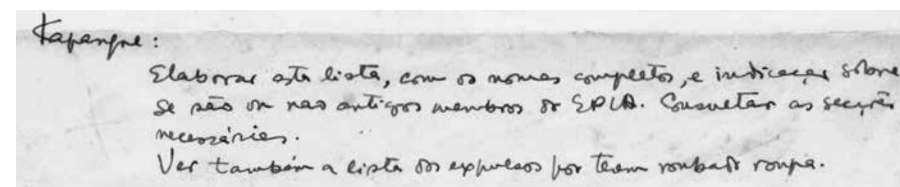 Kapangue:
Elaborar esta lista, com os nomes completos, e indicação sobre
se são ou não antigos membros do EPLA. Consultar as secções
necessárias.
Ver também a lista dos expulsos por terem roubado roupa.